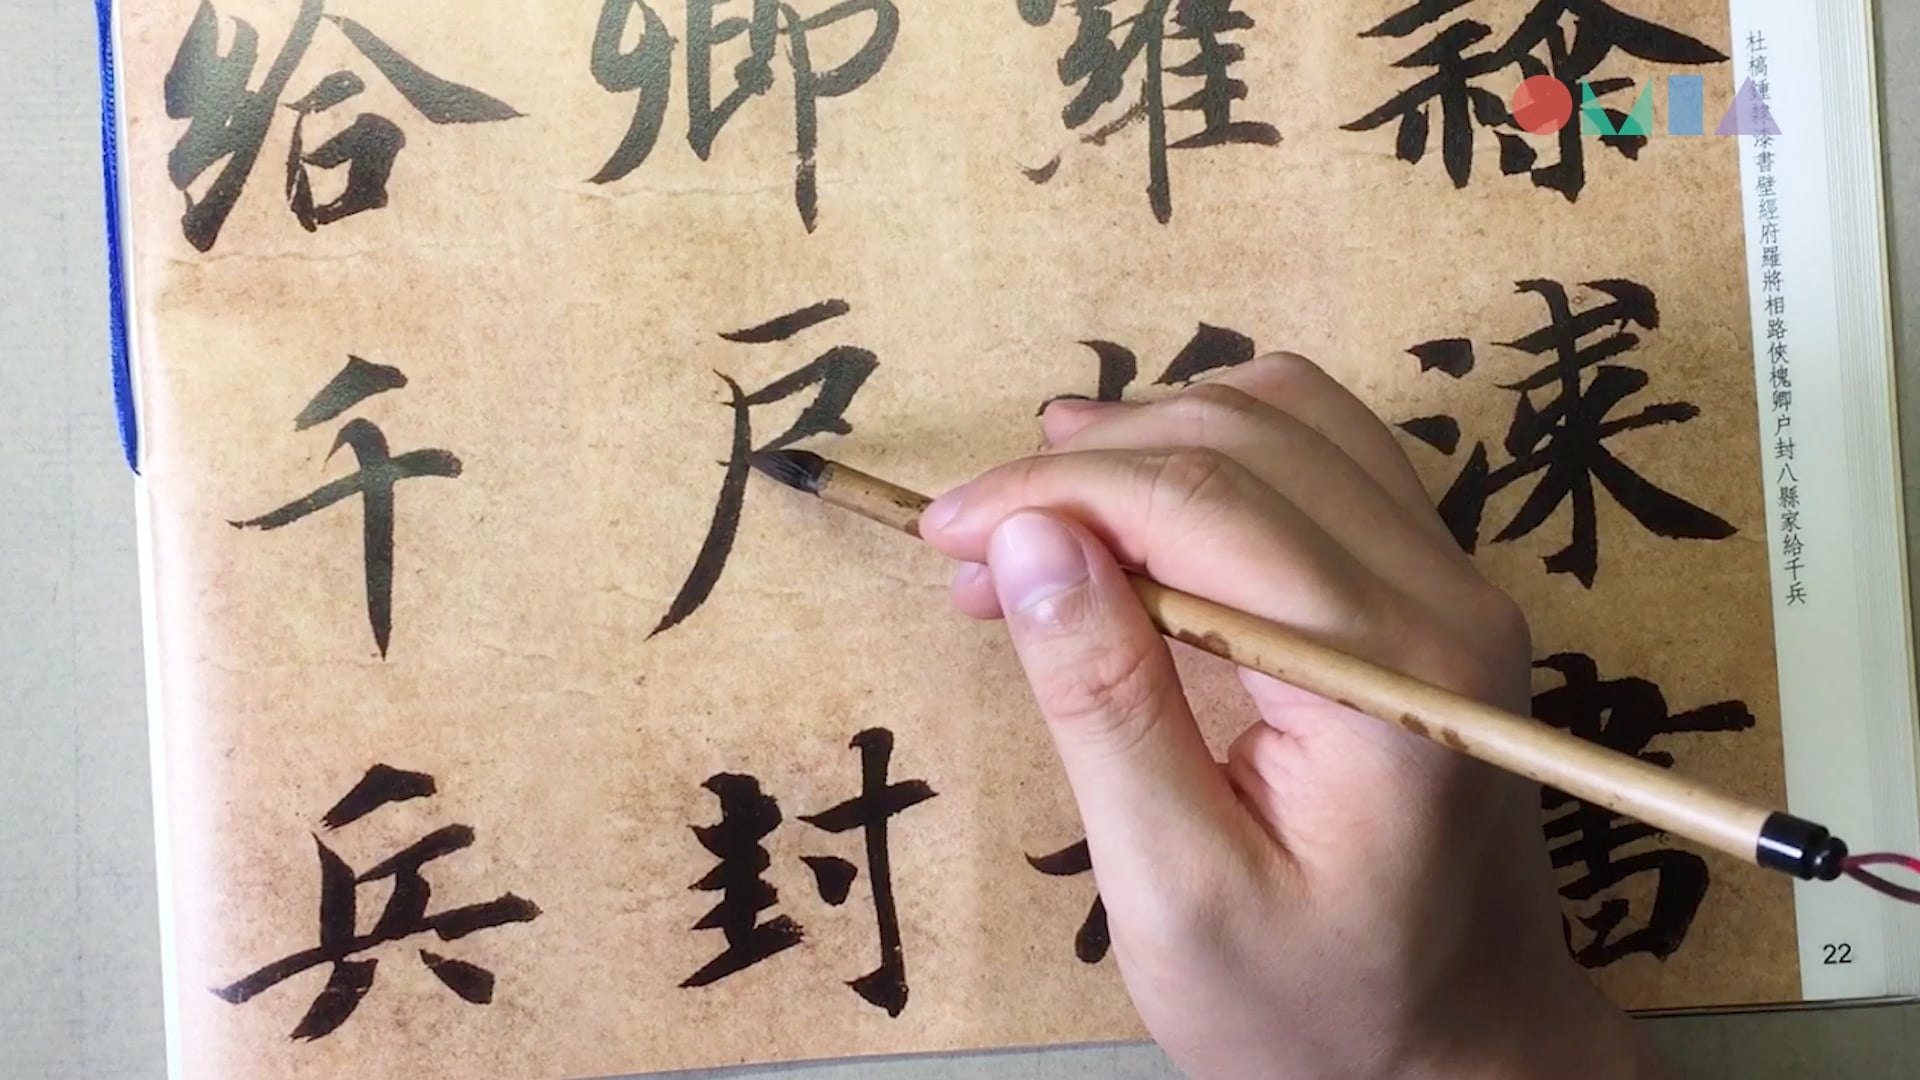 杜槁鍾隸漆書壁經府羅將相路俠槐卿户封八縣家給千兵
隸漆書
羅
卿户封
給千兵
22
OMIA